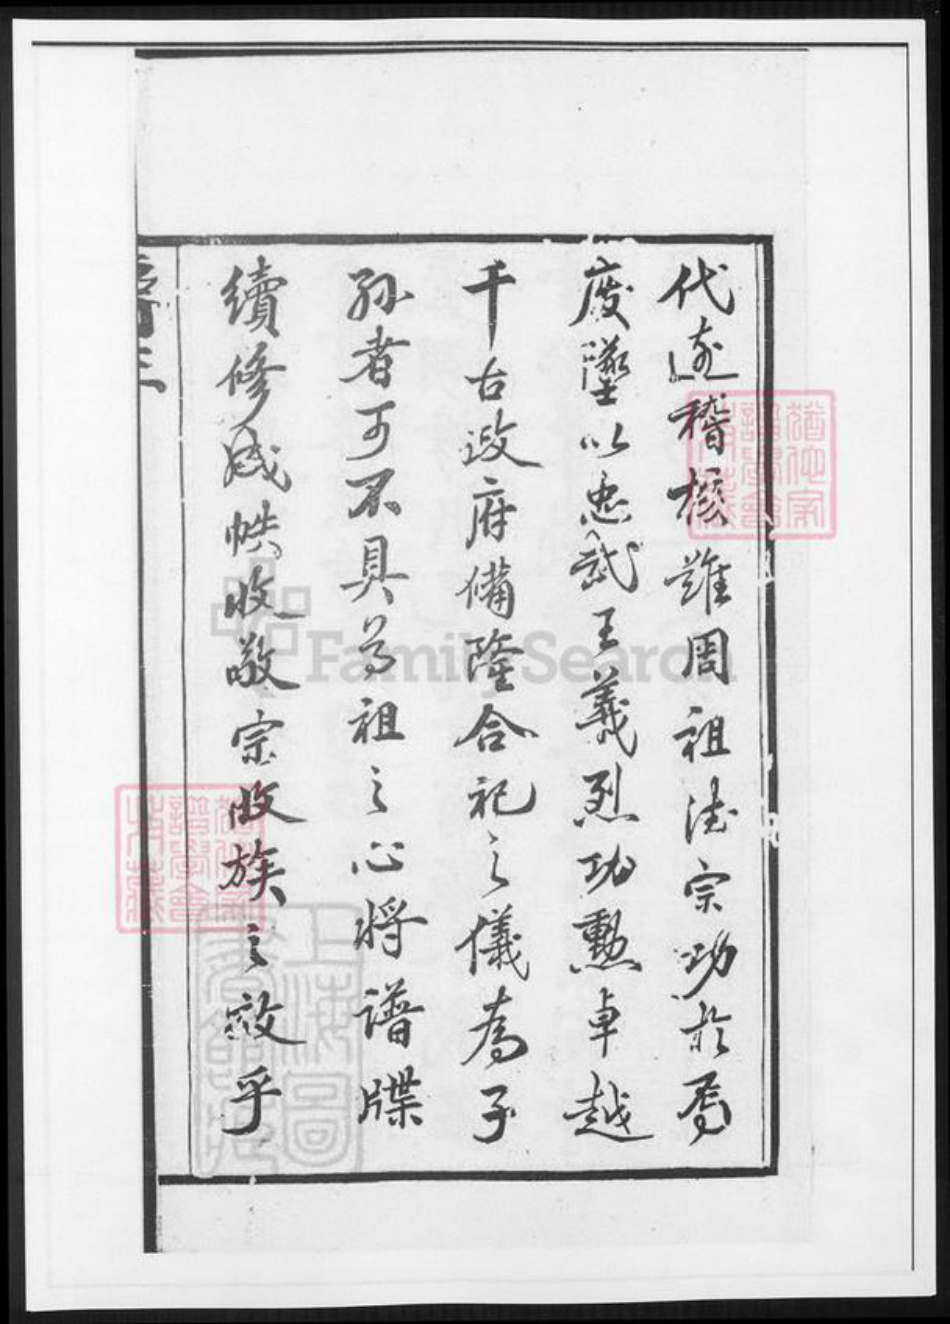 代遠稽核難周祖德宗功於焉
廢墜以忠武王義烈功勲卓越
千古政府備隆合祀之儀為子
孫者可不具尊祖之心將譜牒
續修成帙收敬宗收族之效乎
序三
FamilySearch
上海圖書館藏